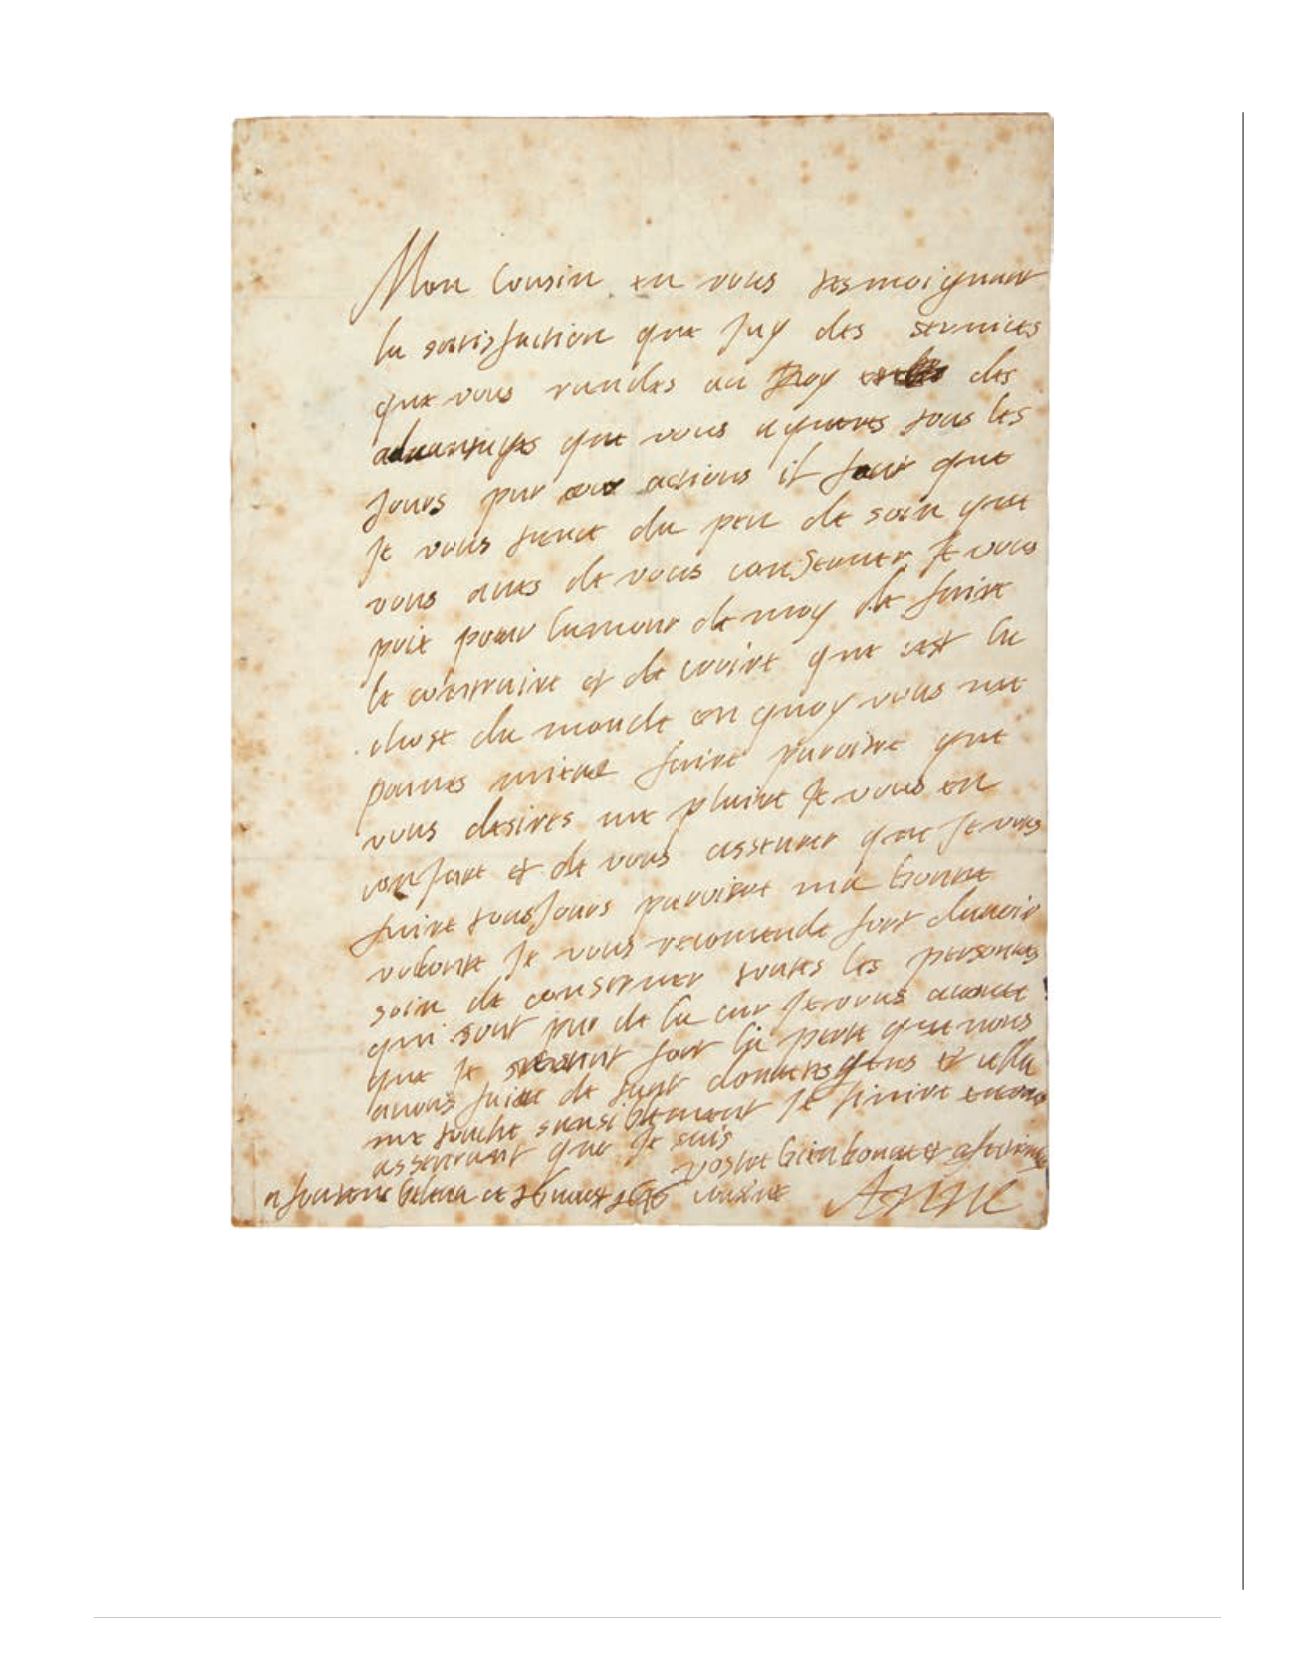 Mon Cousin en vous tesmoignant
la satisfaction que Jay des services
que vous randes au Roy des
aduantages que vous aqueres tous les
Jours par vos actions il faut que
Je vous tance du peu de soin que
vous aues de vous conseruer Je vous
prie pour lamour de moy de faire
le contraire et de croire que cest la
chose du monde en quoy vous me
pouues mieus faire paroitre que
vous desires me plaire Je vous en
conjure et de vous asseurer que Je vous
faire tousJours paroitre ma bonne
volonte Je vous recomende fort dauoir
soin de conseruer toutes les personnes
qui sont par de la car Je vous auoue
que Je resent fort la perte que nous
auons faite de tant donnestes gens et cella
me touche sansiblement Je finire en vous
asseurant que Je suis
vostre bien bonne et afectionee
a fontenebleau ce aoust 1646 cousine Anne